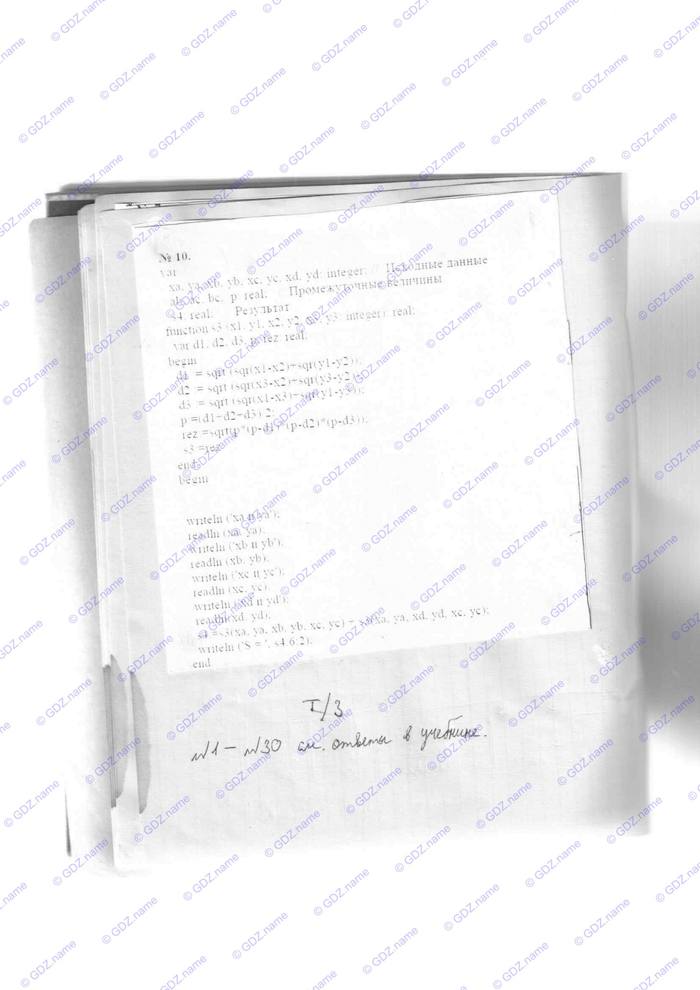 № 10.
var
xa, ya, xb, yb, xc, yc, xd, yd: integer; // Исходные данные
ab, ac, bc, p: real; Промежуточные величины
s4: real; Результат
function s3 (x1, y1, x2, y2, x3, y3: integer): real;
var d1, d2, d3, p, rez: real;
begin
d1 := sqrt (sqr(x1-x2)+sqr(y1-y2));
d2 := sqrt (sqr(x3-x2)+sqr(y3-y2));
d3 := sqrt (sqr(x1-x3)+sqr(y1-y3));
p =(d1+d2+d3) 2;
rez =sqrt(p*(p-d1)*(p-d2)*(p-d3));
s3 =rez
end;
begin
writeln ('xa и ya');
readln (xa, ya);
writeln ('xb и yb');
readln (xb, yb);
writeln ('xc и yc');
readln (xc, yc);
writeln ('xd и yd');
readln (xd, yd);
s4 =s3(xa, ya, xb, yb, xc, yc) + s3(xa, ya, xd, yd, xc, yc);
writeln ('S = ', s4:6:2);
end
I/3
№1 – №30 см. ответы в учебнике.
© GDZ.name